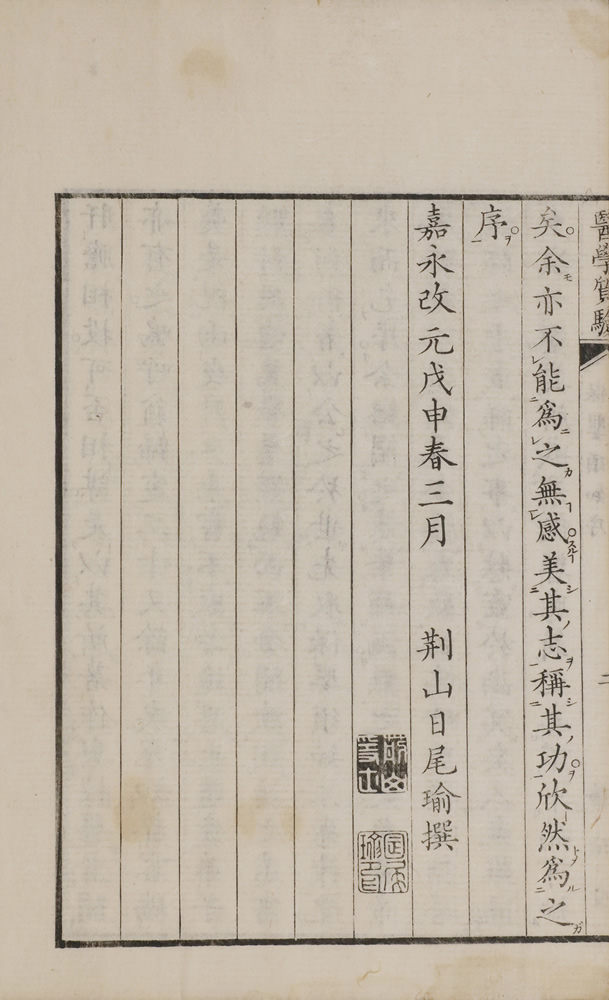 醫學質驗
二
矣余亦不能爲之無感美其志稱其功欣然爲之
序
嘉永改元戊申春三月 荆山日尾瑜撰